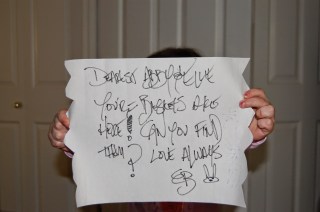 DEAREST ABBY & EVE
YOUR BASKETS ARE
HERE! CAN YOU FIND
THEM? LOVE ALWAYS
EB